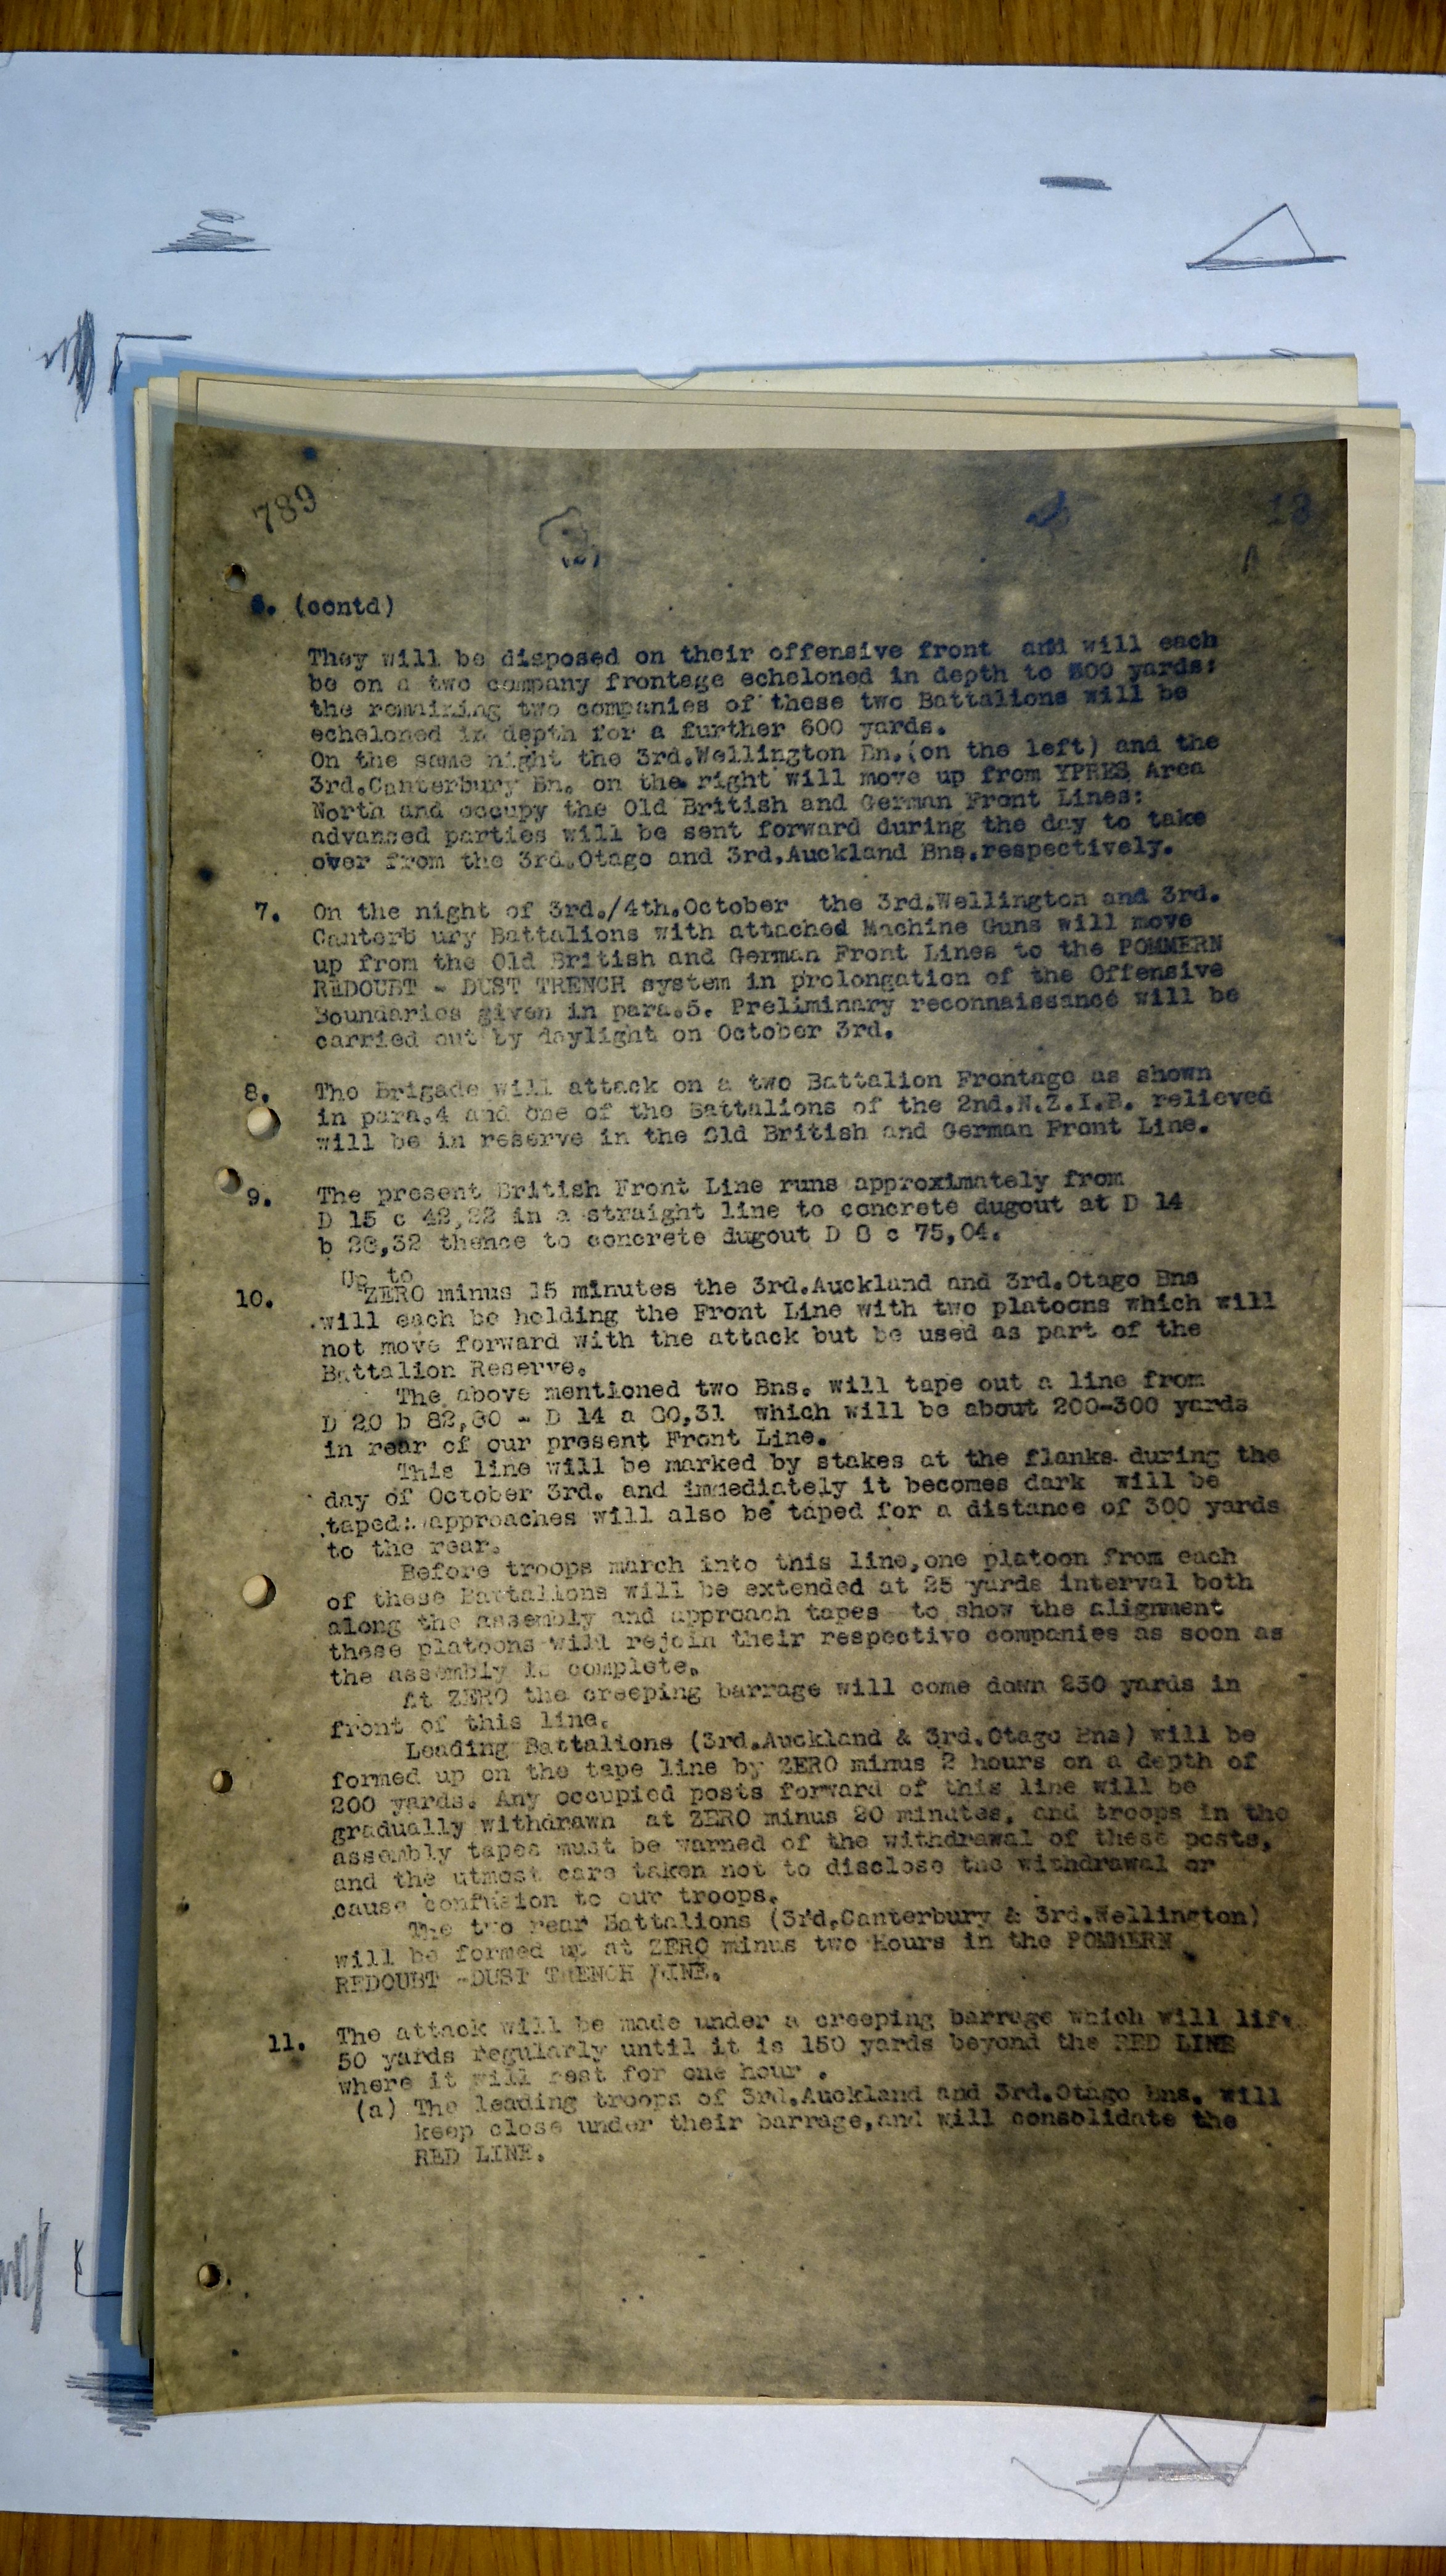 789
(2)
13
6. (contd)
They will be disposed on their offensive front and will each
be on a two company frontage echeloned in depth to 500 yards:
the remaining two companies of these two Battalions will be
echeloned in depth for a further 600 yards.
On the same night the 3rd.Wellington Bn.(on the left) and the
3rd.Canterbury Bn. on the right will move up from YPRES Area
North and occupy the Old British and German Front Lines:
advanced parties will be sent forward during the day to take
over from the 3rd.Otago and 3rd.Auckland Bns.respectively.
7. On the night of 3rd./4th.October the 3rd.Wellington and 3rd.
Canterb ury Battalions with attached Machine Guns will move
up from the Old British and German Front Lines to the POMMERN
REDOUBT - DUST TRENCH system in prolongation of the Offensive
Boundaries given in para.5. Preliminary reconnaissance will be
carried out by daylight on October 3rd.
8. The Brigade will attack on a two Battalion Frontage as shown
in para.4 and one of the Battalions of the 2nd.N.Z.I.B. relieved
will be in reserve in the Old British and German Front Line.
9. The present British Front Line runs approximately from
D 15 c 42,22 in a straight line to concrete dugout at D 14
b 28,32 thence to concrete dugout D 8 c 75,04.
Up to
10. ZERO minus 15 minutes the 3rd.Auckland and 3rd.Otago Bns
will each be holding the Front Line with two platoons which will
not move forward with the attack but be used as part of the
Battalion Reserve.
The above mentioned two Bns. will tape out a line from
D 20 b 82,80 - D 14 a 80,31 which will be about 200-300 yards
in rear of our present Front Line.
This line will be marked by stakes at the flanks during the
day of October 3rd. and immediately it becomes dark will be
taped: approaches will also be taped for a distance of 300 yards
to the rear.
Before troops march into this line,one platoon from each
of these Battalions will be extended at 25 yards interval both
along the assembly and approach tapes to show the alignment
these platoons will rejoin their respective companies as soon as
the assembly is complete.
At ZERO the creeping barrage will come down 250 yards in
front of this line.
Leading Battalions (3rd.Auckland & 3rd.Otago Bns) will be
formed up on the tape line by ZERO minus 2 hours on a depth of
200 yards. Any occupied posts forward of this line will be
gradually withdrawn at ZERO minus 20 minutes, and troops in the
assembly tapes must be warned of the withdrawal of these posts,
and the utmost care taken not to disclose the withdrawal or
cause confusion to our troops.
The two rear Battalions (3rd.Canterbury & 3rd.Wellington)
will be formed up at ZERO minus two Hours in the POMMERN
REDOUBT -DUST TRENCH LINE.
11. The attack will be made under a creeping barrage which will lift
50 yards regularly until it is 150 yards beyond the RED LINE
where it will rest for one hour .
(a) The leading troops of 3rd.Auckland and 3rd.Otago Bns. will
keep close under their barrage,and will consolidate the
RED LINE.